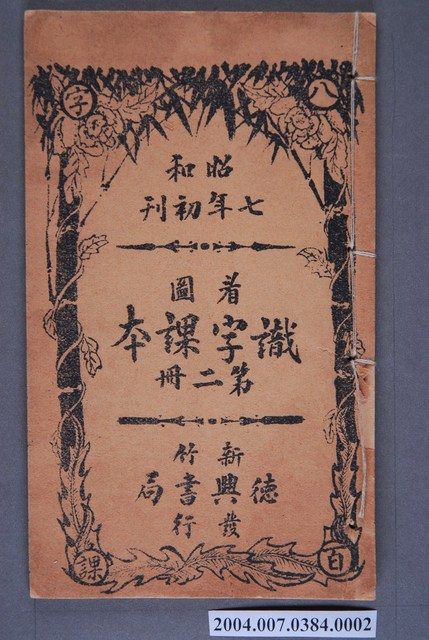 八
字
昭和
七年初刊
看圖
識字課本
第二冊
新竹
德興書局
發行
課
2004.007.0384.0002